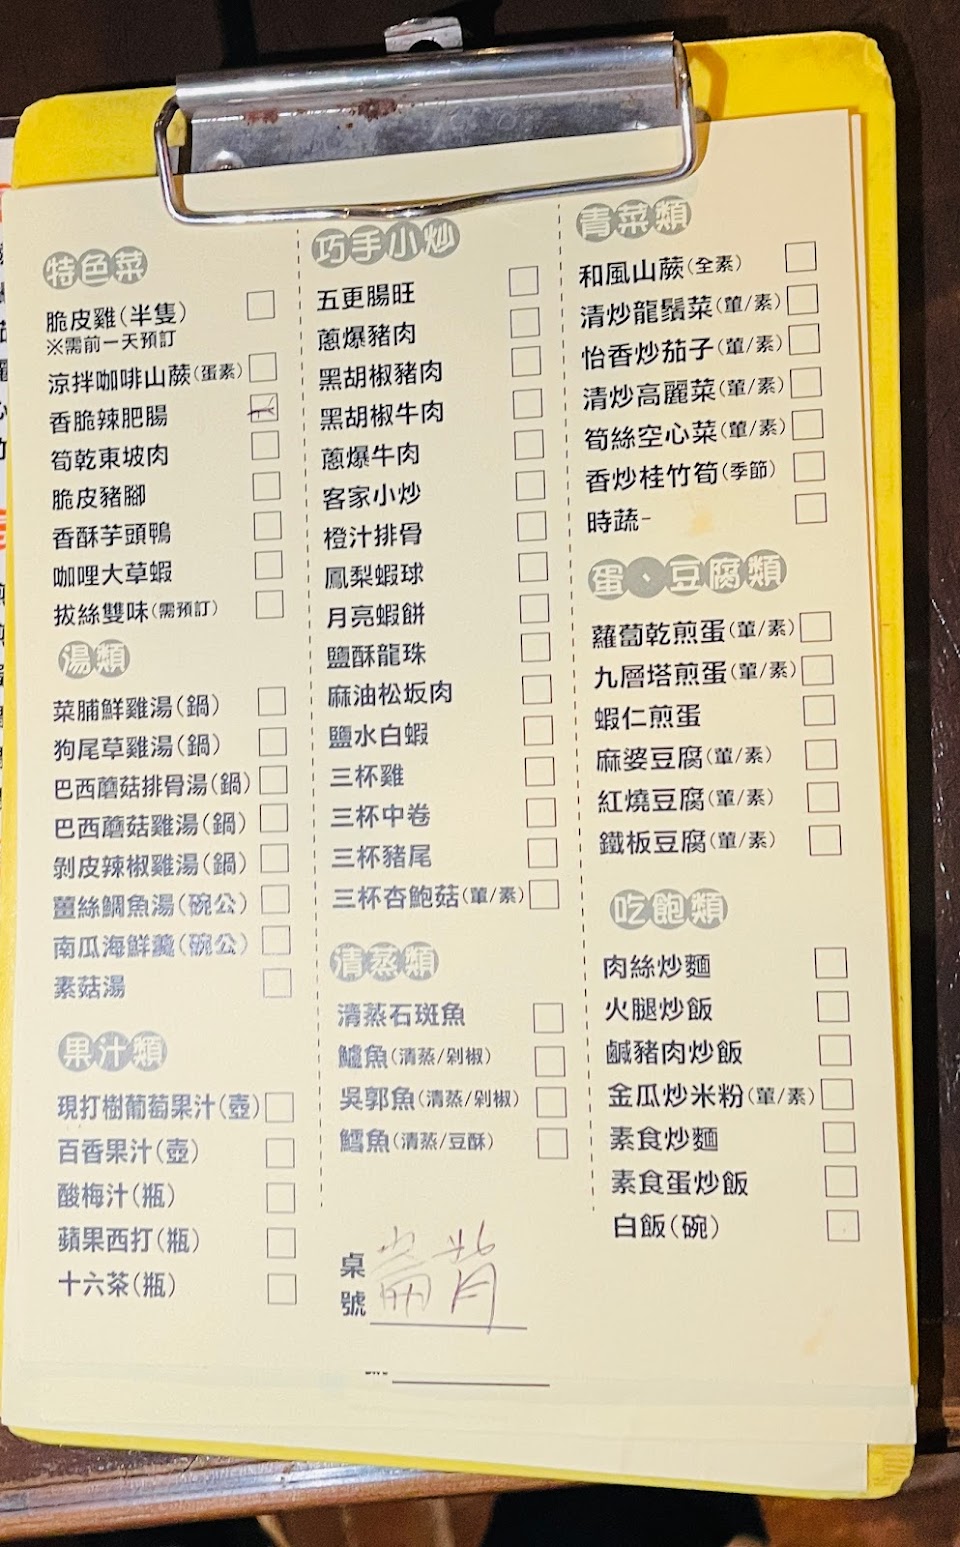 特色菜
脆皮雞(半隻)
※需前一天預訂
涼拌咖啡山蕨(蛋素)
香脆辣肥腸
筍乾東坡肉
脆皮豬腳
香酥芋頭鴨
咖哩大草蝦
拔絲雙味(需預訂)
湯類
菜脯鮮雞湯(鍋)
狗尾草雞湯(鍋)
巴西蘑菇排骨湯(鍋)
巴西蘑菇雞湯(鍋)
剝皮辣椒雞湯(鍋)
薑絲鯛魚湯(碗公)
南瓜海鮮羹(碗公)
素菇湯
果汁類
現打樹葡萄果汁(壺)
百香果汁(壺)
酸梅汁(瓶)
蘋果西打(瓶)
十六茶(瓶)
巧手小炒
五更腸旺
蔥爆豬肉
黑胡椒豬肉
黑胡椒牛肉
蔥爆牛肉
客家小炒
橙汁排骨
鳳梨蝦球
月亮蝦餅
鹽酥龍珠
麻油松坂肉
鹽水白蝦
三杯雞
三杯中卷
三杯豬尾
三杯杏鮑菇(葷/素)
清蒸類
清蒸石斑魚
鱸魚(清蒸/剁椒)
吳郭魚(清蒸/剁椒)
鱈魚(清蒸/豆酥)
桌號
青菜類
和風山蕨(全素)
清炒龍鬚菜(葷/素)
怡香炒茄子(葷/素)
清炒高麗菜(葷/素)
筍絲空心菜(葷/素)
香炒桂竹筍(季節)
時蔬-
蛋、豆腐類
蘿蔔乾煎蛋(葷/素)
九層塔煎蛋(葷/素)
蝦仁煎蛋
麻婆豆腐(葷/素)
紅燒豆腐(葷/素)
鐵板豆腐(葷/素)
吃飽類
肉絲炒麵
火腿炒飯
鹹豬肉炒飯
金瓜炒米粉(葷/素)
素食炒麵
素食蛋炒飯
白飯(碗)